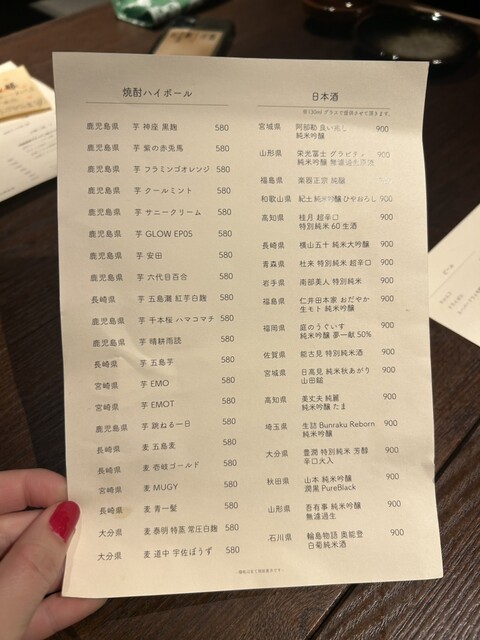 焼酎ハイボール
鹿児島県 芋 神座 黒麹 580
鹿児島県 芋 紫の赤兎馬 580
鹿児島県 芋 フラミンゴオレンジ 580
鹿児島県 芋 クールミント 580
鹿児島県 芋 サニークリーム 580
鹿児島県 芋 GLOW EP05 580
鹿児島県 芋 安田 580
鹿児島県 芋 六代目百合 580
長崎県 芋 五島灘 紅芋白麹 580
鹿児島県 芋 千本桜 ハマコマチ 580
鹿児島県 芋 晴耕雨読 580
長崎県 芋 五島芋 580
宮崎県 芋 EMO 580
宮崎県 芋 EMOT 580
鹿児島県 芋 跳ねる一日 580
長崎県 麦 五島麦 580
長崎県 麦 壱岐ゴールド 580
宮崎県 麦 MUGY 580
長崎県 麦 青一髪 580
大分県 麦 泰明 特蒸 常圧白麹 580
大分県 麦 道中 宇佐ぼうず 580
日本酒
グラスで提供させて頂きます。
宮城県 阿部勘 良い兆し 900
純米吟醸
山形県 栄光冨士 グラビティ
純米吟醸 無濾過生原酒
福島県 楽器正宗 純醸
和歌山県 紀土 純米吟醸 ひやおろし 900
高知県 桂月 超辛口 900
特別純米 60 生酒
長崎県 横山五十 純米大吟醸 900
青森県 杜来 特別純米 超辛口 900
岩手県 南部美人 特別純米 900
福島県 仁井田本家 おだやか 900
生モト 純米吟醸
福岡県 庭のうぐいす 900
純米吟醸 夢一献 50%
佐賀県 能古見 特別純米酒 900
宮城県 日高見 純米秋あがり 900
山田錦
高知県 美丈夫 純麗 900
純米吟醸 たま
埼玉県 生詰 Bunraku Reborn 900
純米吟醸
大分県 豊潤 特別純米 芳醇 900
辛口火入
秋田県 山本 純米吟醸 900
潤黒 PureBlack
山形県 吾有事 純米吟醸 900
無濾過生
石川県 輪島物語 奥能登 900
白菊純米酒